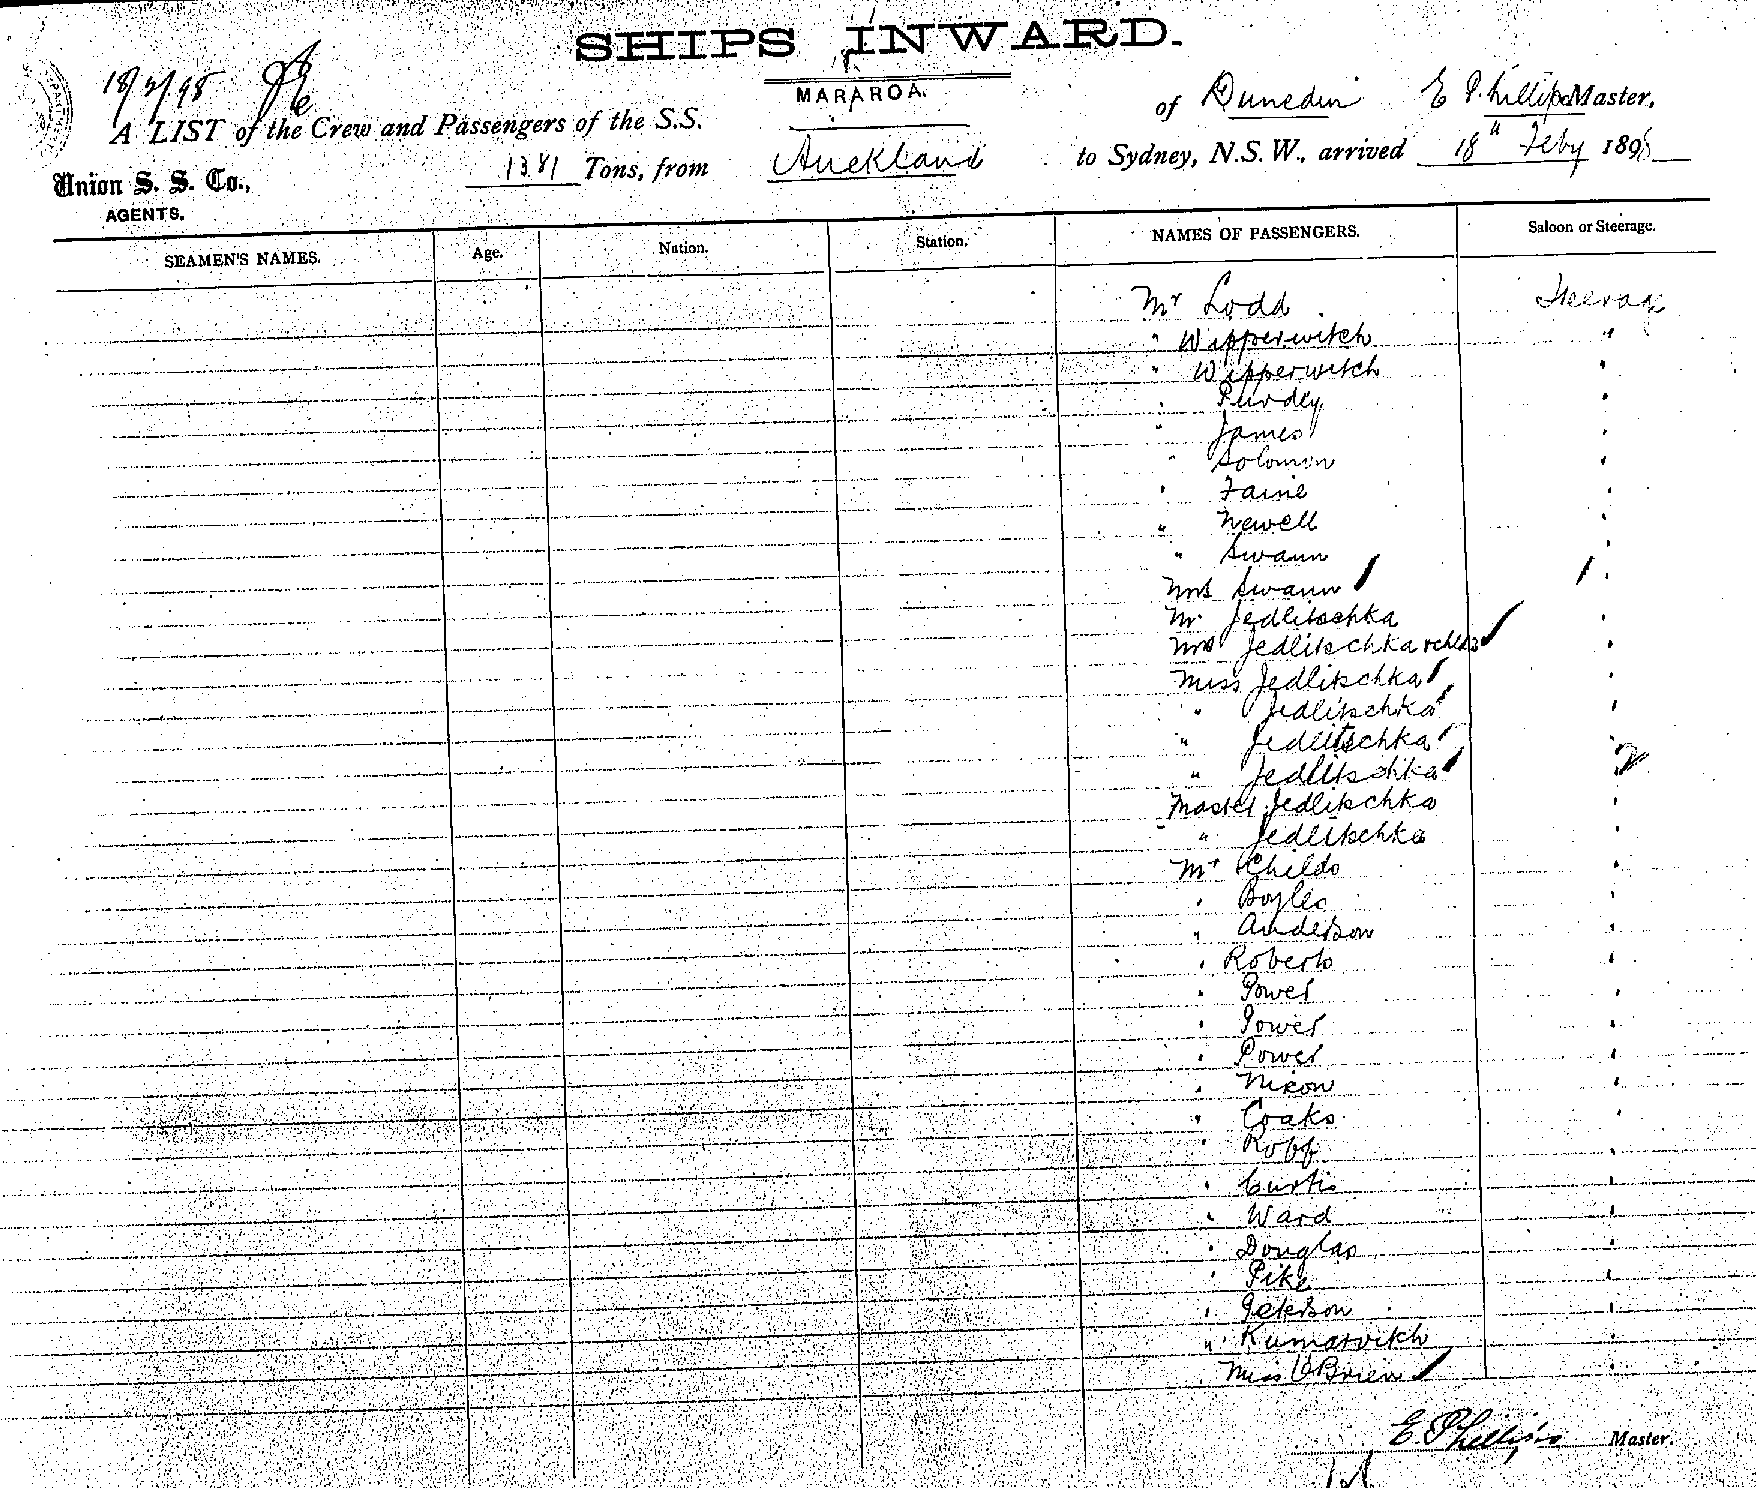 SHIPS INWARD.
18/2/98
MARAROA.
of Dunedin E Phillips Master,
A LIST of the Crew and Passengers of the S.S.
1381 Tons, from Auckland to Sydney, N.S.W., arrived 18" Feby 1898
Union S. S. Co.,
AGENTS.
SEAMEN'S NAMES. Age. Nation. Station. NAMES OF PASSENGERS. Saloon or Steerage.
Mr Lodd Steerage
" Wipperwitch "
" Wipperwitch "
" Purdey "
" James "
" Solomon "
" Faine "
" Newell "
" Swann "
Mrs Swann "
Mr Jedlitschka "
Mrs Jedlitschka "
Miss Jedlitschka "
" Jedlitschka "
" Jedlitschka "
" Jedlitschka "
Master Jedlitschka "
" Jedlitschka "
Mr Childs "
" Boyles "
" Anderson "
" Roberts "
" Power "
" Power "
" Power "
" Nixon "
" Coaks "
" Robb "
" Curtis "
" Ward "
" Douglas "
" Pike "
" Peterson "
" Kumarvitch "
Miss O'Brien "
E Phillips Master.